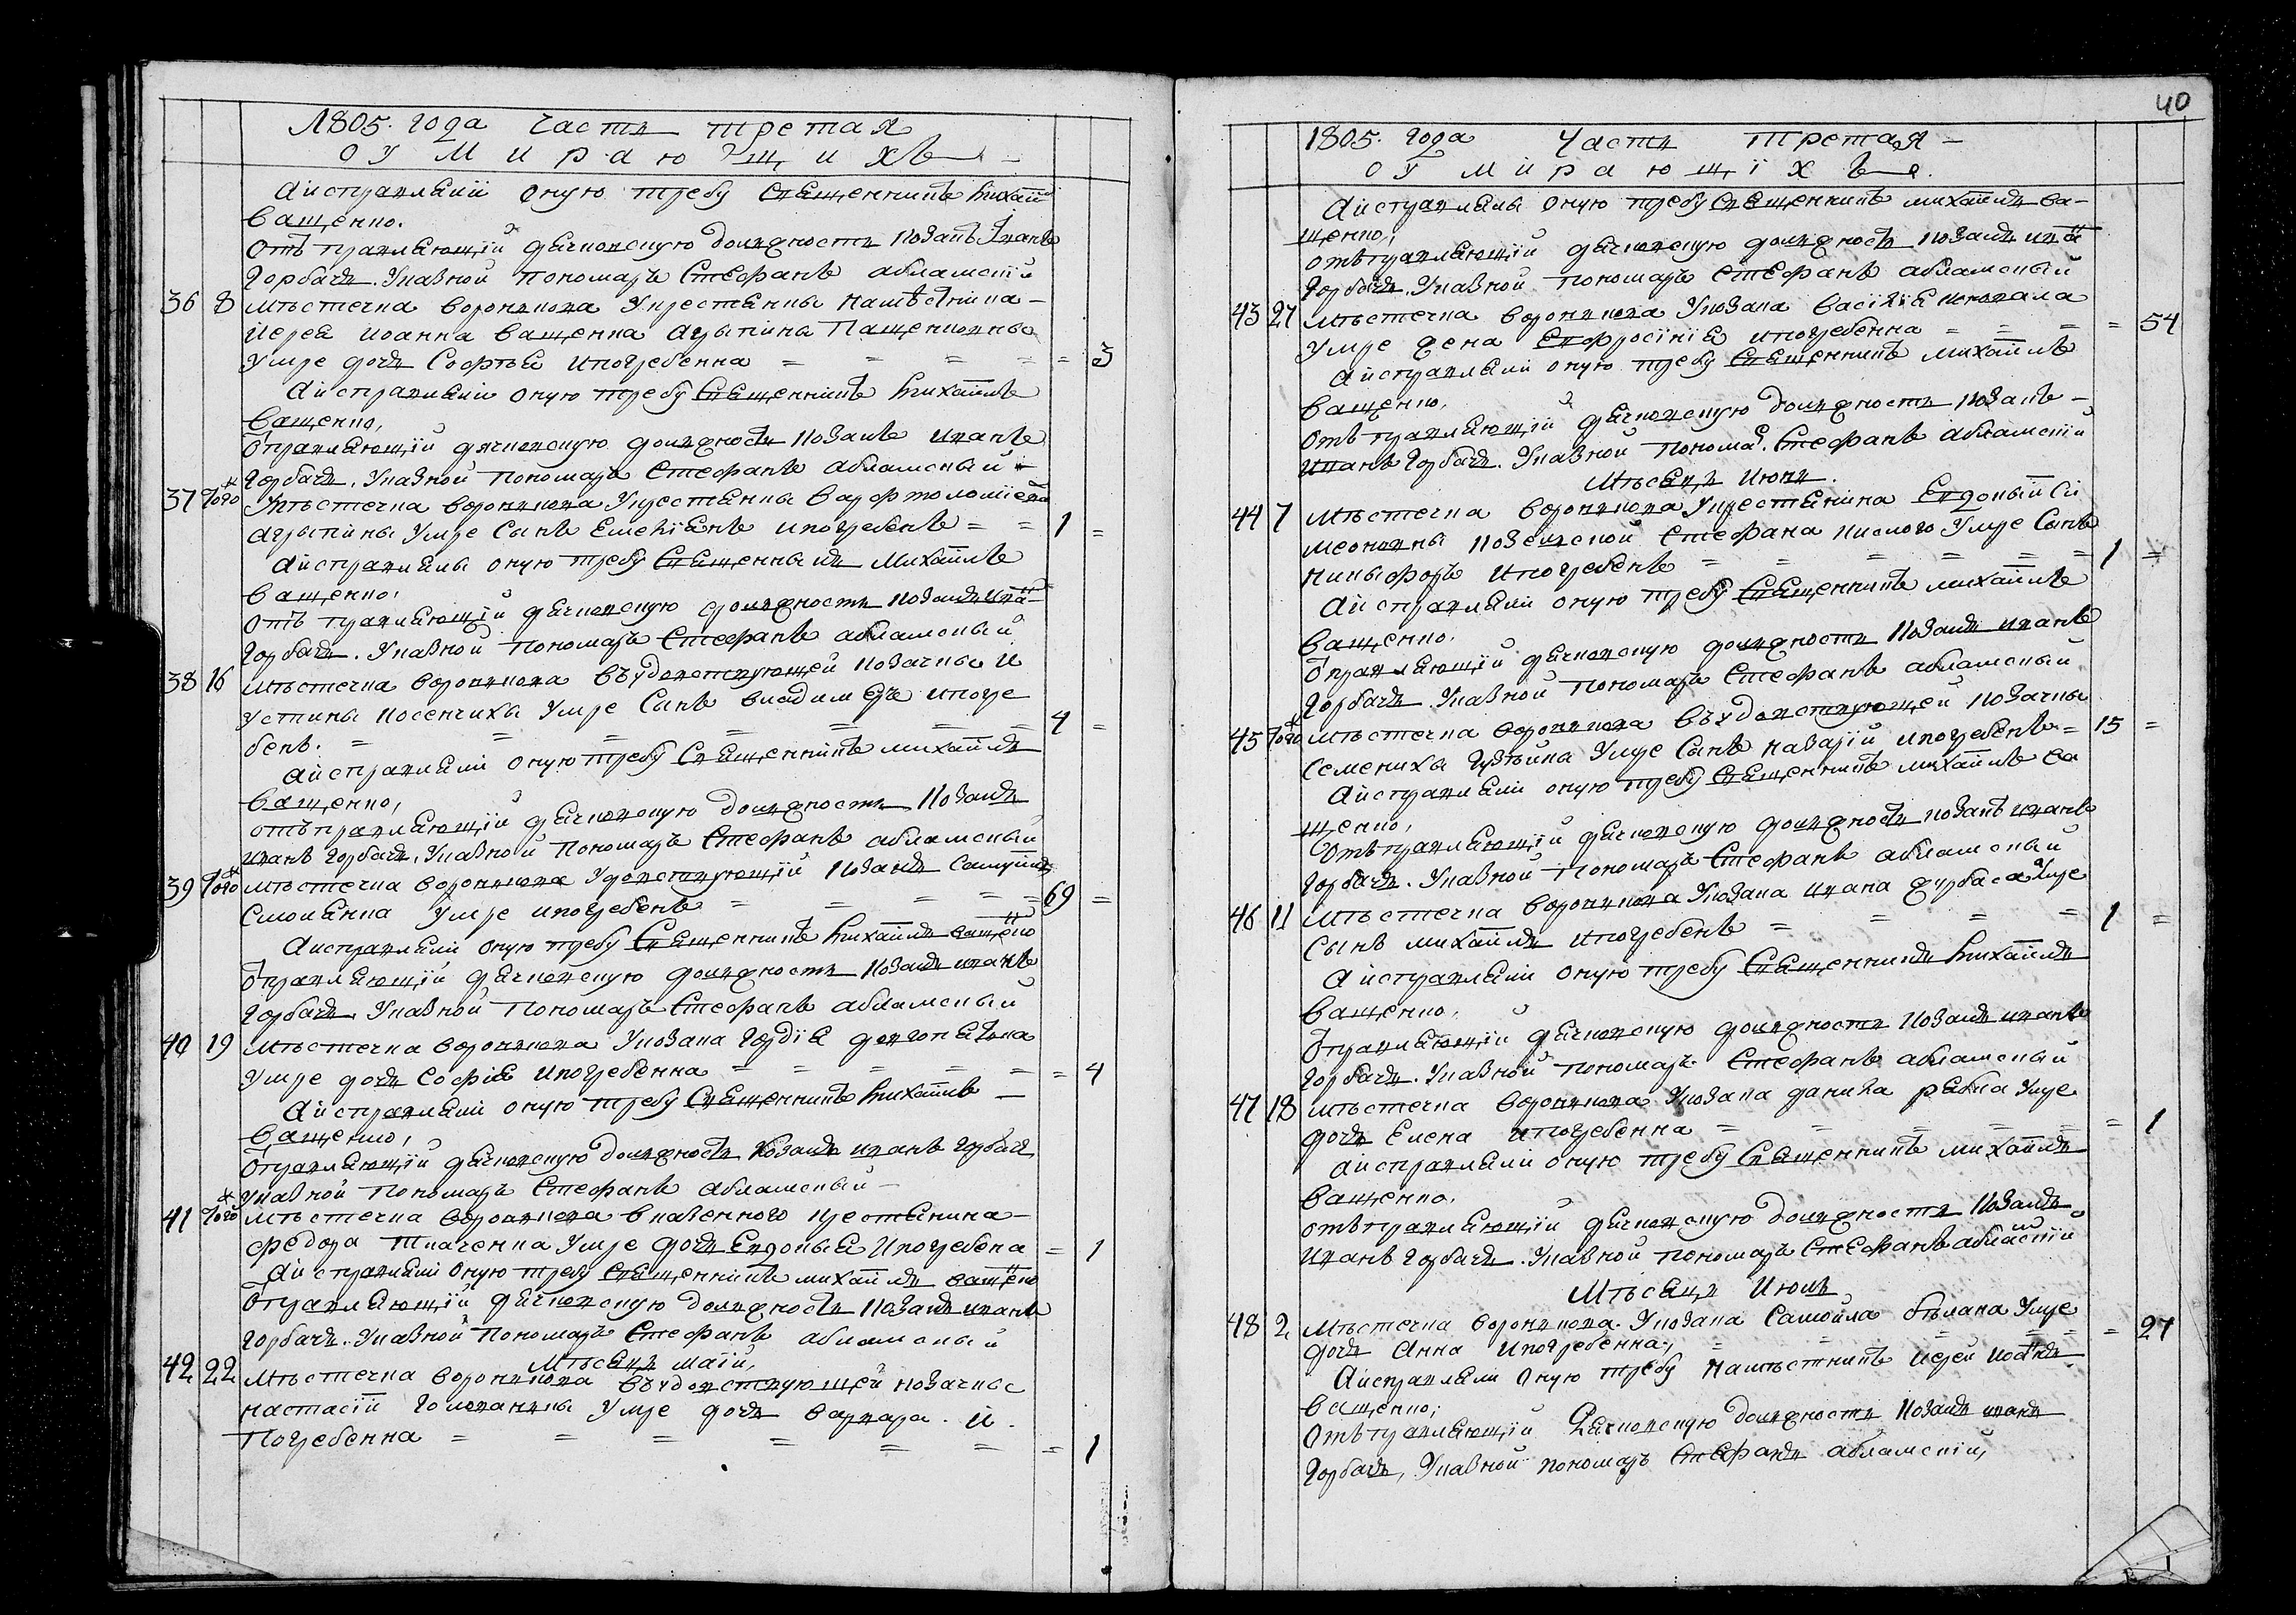 1805. года часть третая
о умирающихъ
Аисправлялъ оную требу Священникъ Михаил
Ващенко.
отъправляющій дячковскую должность козакъ Іванъ
Горбачь. Указной пономаръ Стефанъ абламскій
36 8 мѣстечка воронкова Укрестьянки намѣстника
Иерея иоанна ващенка агрыпины Пащенковны
умре дочь Софѣя ипогребенна = = = = = 3
Аисправлялъ оную требу Священникъ михаилъ
Ващенко,
Отправляющій дячковскую должность козакъ иванъ
Горбачь, Указной пономаръ Стефанъ Абламскый
37 того Умѣстечка воронкова Укрестьянки варфтоломѣева
агрыпины умре Сынъ Емелiянъ ипогребенъ = = 1 =
Аисправлялъ оную требу Священныкъ михаилъ
Ващенко,
отъ правляющій дячковскую должность козакъ ива
Горбачь. Указной пономаръ Стефанъ абламскый
38 16 мѣстечка воронкова въудовствующей козачкы и
устины косенчиха умре Сынъ владимеръ ипогре
бенъ. = = = = = = 4 =
Аисправлялъ оную требу Священникъ михаилъ
Ващенко,
отъправляющій дячковскую должность козакъ
иванъ горбачь, Указной пономаръ Стефанъ абламскый
39 того мѣстечка воронкова Удовствующій козакъ Самуилъ
Смолянка умре ипогребенъ = = = = = 69 =
Аисправлялъ оную требу Священникъ михаилъ ващенко
Отправляющій дячковскую должность козакъ иванъ
Горбачь, Указной пономаръ Стефанъ абламскый
40 19 мѣстечка воронкова Укозака Гордія
умре дочь Софія ипогребенна = = = = = = 4
Аисправлялъ оную требу Священникъ михаилъ
Ващенко,
Отправляющій дячковскую должность козакъ иванъ горбачь
Указной пономаръ Стефанъ абламскый
41 того мѣстечка воронкова вказенного крестянина
федора ткаченка умре дочь Евдокыя ипогребена = 1
Аисправлялъ оную требу Священникъ михаилъ ващенко
Отправляющій дячковскую должность козакъ иванъ
горбачь. Указной пономаръ Стефанъ абламскый
мѣсяцъ маій,
42 22 мѣстечка воронкова въудовствующей козачкы
настасіи умре дочь варвара. и
погребенна = = = = = = = 1
40
1805. года Часть третая
о умирающіхъ.
Аисправлялъ оную требу Священникъ михаилъ ва-
щенко,
отъправляющій дячковскую должность козакъ ива
горбачь. Указной пономаръ Стефанъ абламскый
43 27 мѣстечка воронкова Укозака васілія коновала
умре жена Евфросінія ипогребенна = = = = 54
Аисправлялъ оную требу Священникъ михаилъ
Ващенко,
отъ правляющій дячковскую должность козакъ
иванъ горбачь. Указной понома. Стефанъ абламскій
мѣсяцъ июнь.
44 7 мѣстечка воронкова Укрестянина Евдокый Си
меоновны козелской Стефана кислого умре Сынъ
никыфоръ ипогребенъ = = = = = 1 =
Аисправлялъ оную требу Священникъ михаилъ
Ващенко,
Отправляющій дячковскую должность козакъ иванъ
горбачь Указной пономаръ Стефанъ абламскый
45 того мѣстечка воронкова въудовствующей козачкы
Семениха умре Сынъ назарій ипогребенъ = 15 =
Аисправлялъ оную требу Священникъ михаилъ ва
щенко,
отъправляющій дячковскую должность козакъ иванъ
горбачь. Указной пономаръ Стефанъ абламскый
46 11 мѣстечка воронкова Укозака ивана гурбаса умре
Сынъ михаилъ ипогребенъ = = = = 1 =
Аисправлялъ оную требу Священникъ михаилъ
Ващенко,
Отправляющій дячковскую должность козакъ иванъ
горбачь. Указной пономаръ Стефанъ абламскый
47 18 мѣстечка воронкова Укозака данила рябка умре
дочь Елена ипогребенна = = = = = = 1
Аисправлялъ оную требу Священникъ михаилъ
Ващенко,
отъправляющій дячковскую должность козакъ
иванъ горбачь. Указной пономаръ Стефанъ абламскій
Мѣсяцъ Июль
48 2 мѣстечка воронкова Укозака Самойла бѣлана умре
дочь Анна ипогребенна, = = = = = 27
Аисправлялъ оную требу намѣстникъ иерей иоанъ
Ващенко;
отъправляющій дячковскую должность козакъ иванъ
Горбачь, Указной пономаръ Стефанъ абламскій,